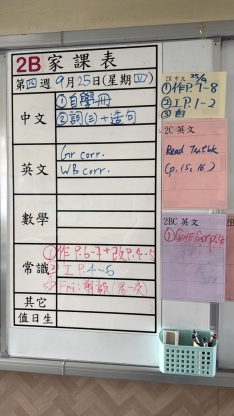 2B 家課表
第四週 9月25日(星期四)
中文
①自學冊
②詞(三)+造句
英文
Gr corr.
WB corr.
數學
常識
①作 P.6-7+改P.4-5
② I.P.4-6
其它
值日生
2B 中文 25/9
①作P.7-8
②工P.1-2
③自
2C 英文
Read Textbk
(p.15, 16)
2BC 英文